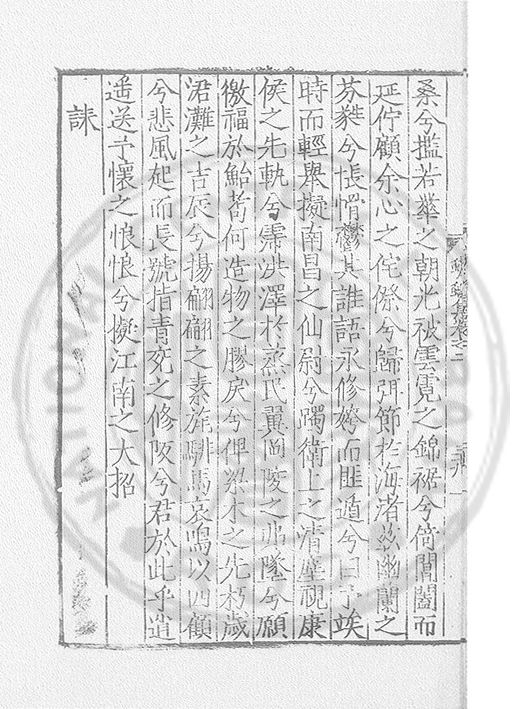 桑兮擥若華之朝光被雲霓之錦裾兮倚閶闔而
延佇顧余心之侘傺兮歸弭節於海渚茲幽蘭之
芬蕤兮悵悁鬱其誰語永修姱而匪遁兮曰予竢
時而輕舉擬南昌之仙尉兮躅衛上之清塵視康
侯之先軌兮霈洪澤於蒸民冀岡陵之弗墜兮願
徼福於鮐耇何造物之膠戾兮俾梁木之先朽歲
涒灘之吉辰兮揚翩翩之素旐騑馬哀鳴以四顧
兮悲風起而長號指青兖之修阪兮君於此乎逍
遥送予懷之悢悢兮擬江南之大招
誄